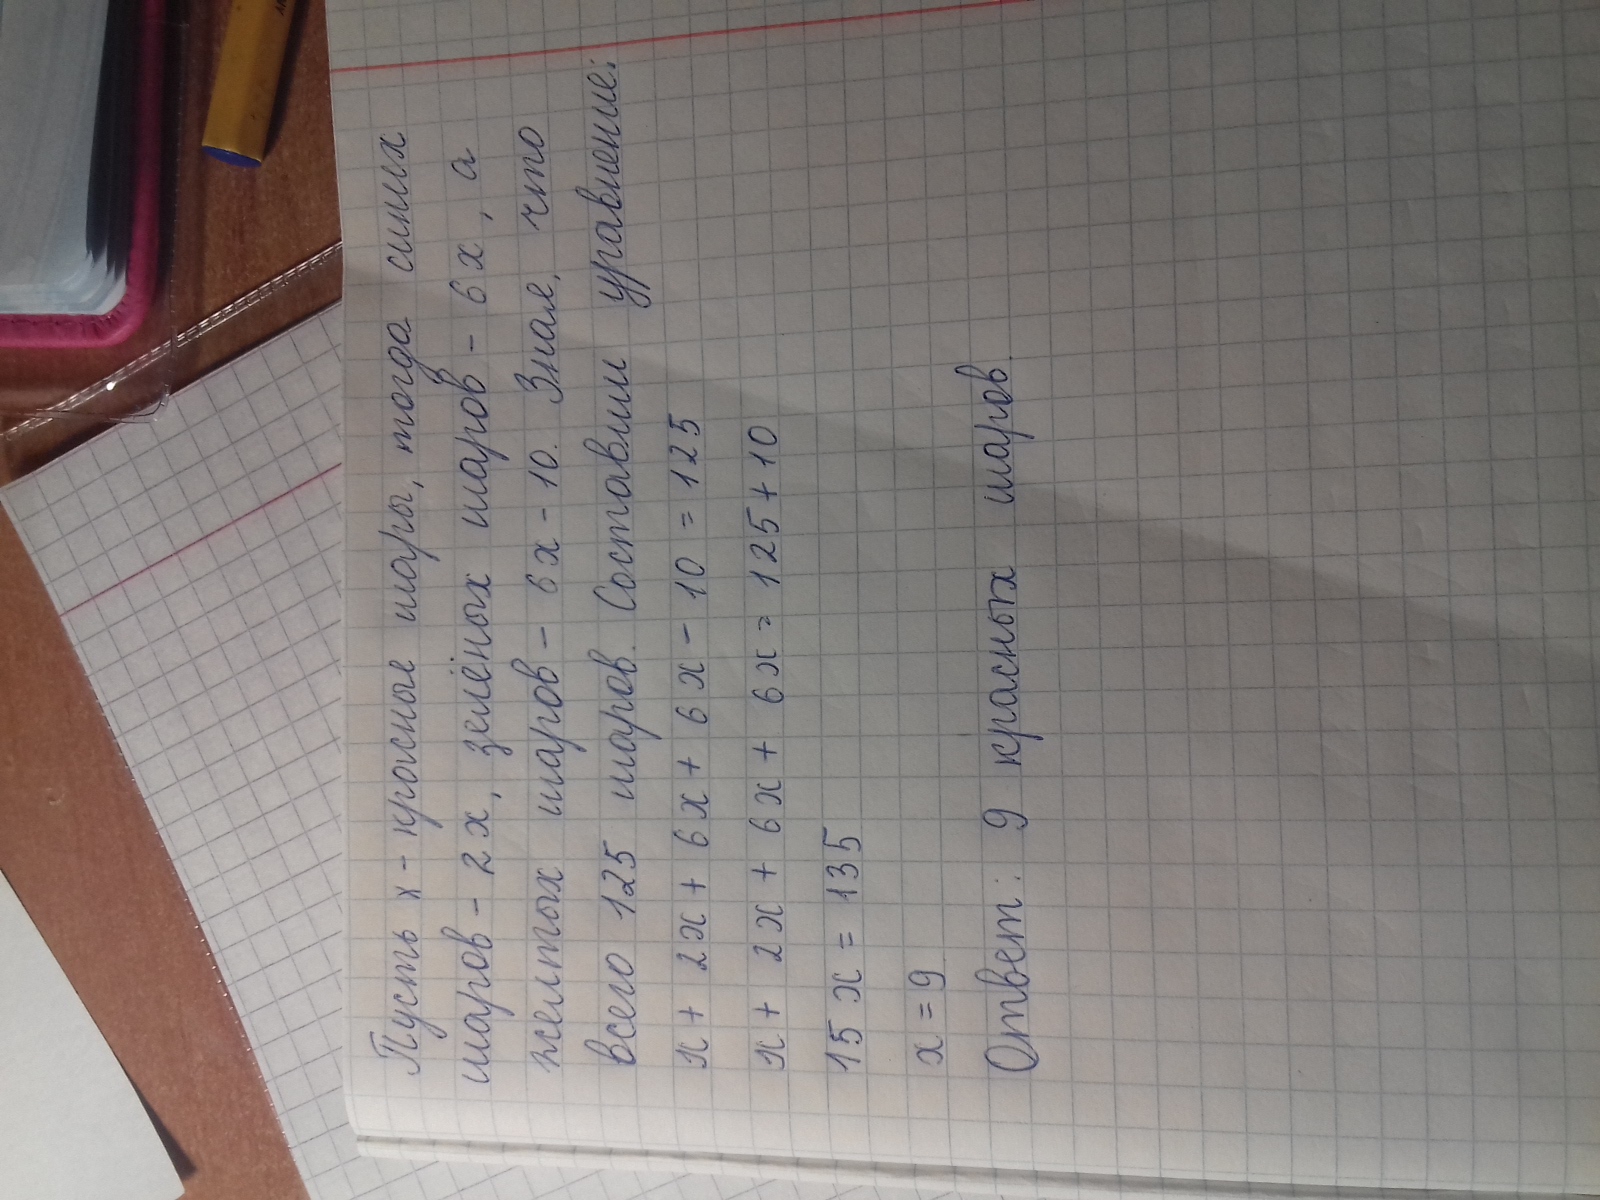 Пусть х - красные шары, тогда синих
шаров - 2х, зелёных шаров - 6х, а
желтых шаров - 6х - 10. Зная, что
всего 125 шаров. Составим уравнение:
х + 2х + 6х + 6х - 10 = 125
х + 2х + 6х + 6х = 125 + 10
15х = 135
х = 9
Ответ: 9 красных шаров.